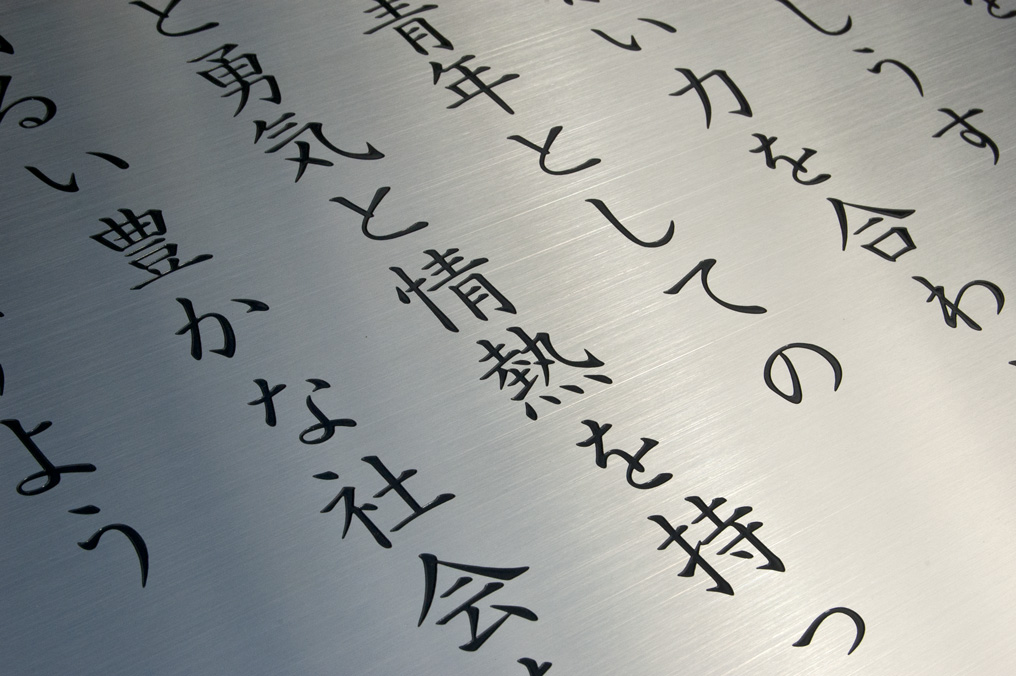 うす
い力を合わ
青年としての
と勇気と情熱を持つ
るい豊かな社会
よう